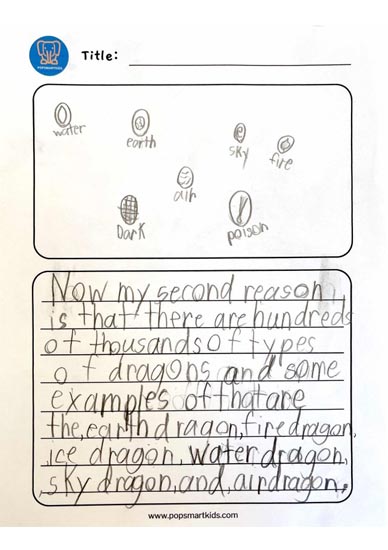 POPSMARTKIDS
Title:
water
earth
sky
fire
air
Dark
poison
Now my second reason
is that there are hundreds
of thousands of types
of dragons and some
examples of that are
the, earth dragon, fire dragon,
ice dragon, water dragon,
sky dragon, and, air dragon.
www.popsmartkids.com